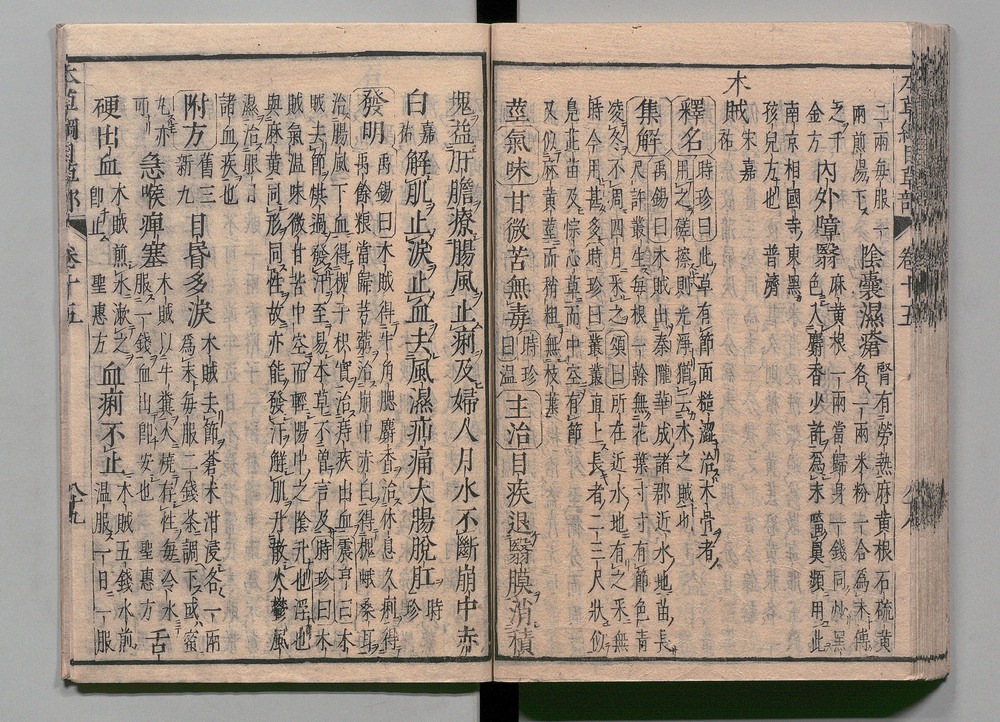 二兩每服一 陰囊濕瘡 腎有勞熱麻黃根石硫黃
兩煎湯下 各一兩米粉一合爲末傅
之千 內外障翳 麻黃根一兩當歸身一錢同炒黑
金方 色入麝香少許爲末㗜鼻頻用此
南京相國寺東黑
孩兒方也 普濟
木賊 宋嘉祐
釋名 時珍曰此草有節面糙澁治木骨者
用之磋擦則光淨猶云木之賊也
集解 禹錫曰木賊出秦隴華成諸郡近水地苗長
尺許叢生每根一幹無花葉寸寸有節色青
凌冬不凋四月采之頌曰所在近水地有之采無
時今用甚多時珍曰叢叢直上長者二三尺狀似
鳧茈苗及椶心草而中空有節
又似麻黃莖而稍粗無枝葉
莖氣味甘微苦無毒 時珍曰溫 主治目疾退翳膜消積
塊益肝膽療腸風止痢及婦人月水不斷崩中赤
白 嘉祐 解肌止淚止血去風濕疝痛大腸脫肛 時珍
發明 禹錫曰木賊得牛角䚡麝香治休息久痢得
禹餘粮當歸芎藭治崩中赤白得槐蛾桑耳
治腸風下血得槐子枳實治痔疾出血震亨曰木
賊去節烘過發汗至易本草不曾言及時珍曰木
賊氣溫味微甘苦中空而輕陽中之陰升也浮也
與麻黃同形同性故亦能發汗解肌升散火鬱風
濕治眼目
諸血疾也
附方 舊三 目昏多淚 木賊去節蒼术泔浸各一兩
新九 爲末每服二錢茶調下或蜜
丸亦 急喉痺塞 木賊以牛糞火燒存性每冷水
可 服一錢血出即安也 聖惠方 舌
硬出血 木賊煎水漱之 血痢不止 木賊五錢水煎
即止 聖惠方 溫服一日一服
本草綱目草部 卷十五